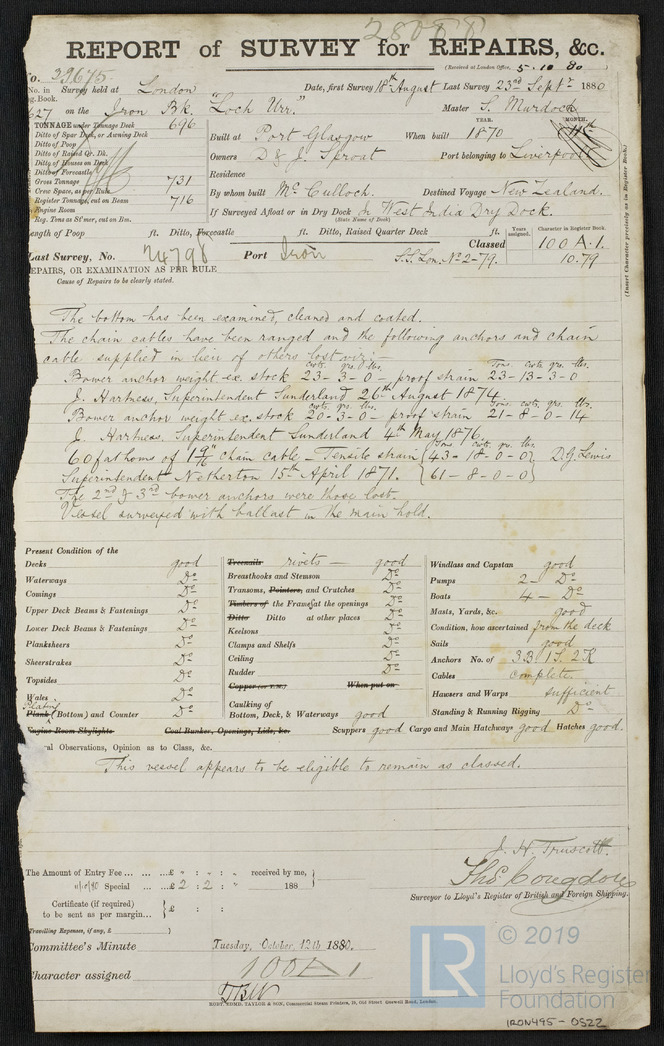 28088
REPORT of SURVEY for REPAIRS, &c.
(Received at London Office, 5.10.80
No. 39675
No. in Survey held at London Date, first Survey 18th August Last Survey 23rd Septr 1880
Reg. Book.
on the Iron Bk. "Loch Urr." Master S. Murdock
TONNAGE under Tonnage Deck 696
Ditto of Spar Deck, or Awning Deck
Ditto of Poop
Ditto of Raised Qr. Dk.
Ditto of Houses on Deck
Ditto of Forecastle
Gross Tonnage 731
Crew Space, as per Rule
Register Tonnage, cut on Beam 716
Engine Room
Reg. Tons as St'mer, cut on Bm.
YEAR. MONTH.
Built at Port Glasgow When built 1870
Owners D & J. Sproat Port belonging to Liverpool
Residence
By whom built McCulloch. Destined Voyage New Zealand.
If Surveyed Afloat or in Dry Dock In West India Dry Dock.
(State Name of Dock)
Length of Poop ft. Ditto, Forecastle ft. Ditto, Raised Quarter Deck ft.
Years assigned. Character in Register Book.
Last Survey, No. 24798 Port Iron Classed 100 A.1.
S.S. Lon. No 2-79. 10.79
(Insert Character precisely as in Register Book.)
REPAIRS, OR EXAMINATION AS PER RULE
Cause of Repairs to be clearly stated.
The bottom has been examined, cleaned and coated.
The chain cables have been ranged and the following anchors and chain
cable supplied in lieu of others lost viz:-
cwts. qrs. lbs. Tons. cwts. qrs. lbs.
Bower anchor weight ex. stock 23-3-0 - proof strain 23-13-3-0
J. Hartness, Superintendent Sunderland 26th August 1874.
cwts. qrs. lbs. Tons. cwts. qrs. lbs.
Bower anchor weight ex. stock 20-3-0 - proof strain 21-8-0-14
J. Hartness, Superintendent Sunderland 4th May 1876.
Tons. cwts. qrs. lbs.
60 fathoms of 1 9/16" chain cable - Tensile strain {43-18-0-0} D.G. Lewis
Superintendent Netherton 15th April 1871. {61-8-0-0}
The 2nd & 3rd bower anchors were those lost.
Vessel surveyed with ballast in the main hold.
Present Condition of the
Decks good
Waterways Do
Comings Do
Upper Deck Beams & Fastenings Do
Lower Deck Beams & Fastenings Do
Planksheers Do
Sheerstrakes Do
Topsides Do
Wales Do
Plating
Plank (Bottom) and Counter Do
Engine Room Skylights
Treenails rivets - good
Breasthooks and Stemson Do
Transoms, Pointers, and Crutches Do
Timbers of the Frames at the openings Do
Ditto Ditto at other places Do
Keelsons Do
Clamps and Shelfs Do
Ceiling Do
Rudder Do
Copper (or Y.M.) When put on
Caulking of
Bottom, Deck, & Waterways good
Coal Bunker, Openings, Lids, &c.
Windlass and Capstan good
Pumps 2- Do
Boats 4- Do
Masts, Yards, &c. good
Condition, how ascertained from the deck
Sails good
Anchors No. of 3B 1S. 2K
Cables complete.
Hawsers and Warps sufficient
Standing & Running Rigging Do
Scuppers good Cargo and Main Hatchways good Hatches good.
General Observations, Opinion as to Class, &c.
This vessel appears to be eligible to remain as classed.
J. H. Truscott.
Thos. Congdon
Surveyor to Lloyd's Register of British and Foreign Shipping.
The Amount of Entry Fee ... ... ...£ : : received by me,
Special ... ...£ 2 : 2 : 188
Certificate (if required)
to be sent as per margin... £ : :
Travelling Expenses, if any, £
Committee's Minute Tuesday, October, 12th 1880.
Character assigned 100 A 1
TBW
KENT, EDMD. TAYLOR & SON, Commercial Steam Printers, Old Street, Goswell Road, London.
LR
© 2019
Lloyd's Register
Foundation
IRON495-0522